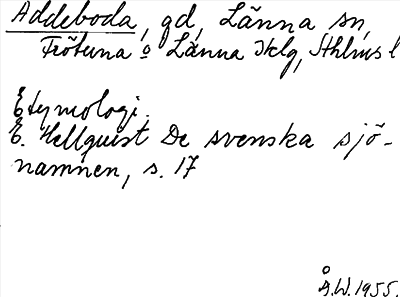 Addeboda, gd, Länna sn,
Frötuna o Länna skg, Sthlms l
Etymologi.
E. Hellquist De svenska sjö-
namnen, s. 17
Å.W. 1955.